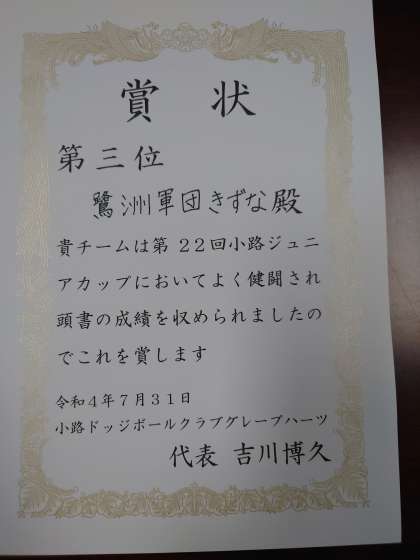 賞状
第三位
鷺洲軍団きずな殿
貴チームは第22回小路ジュニ
アカップにおいてよく健闘され
頭書の成績を収められましたの
でこれを賞します
令和4年7月31日
小路ドッジボールクラブグレープハーツ
代表 吉川博久